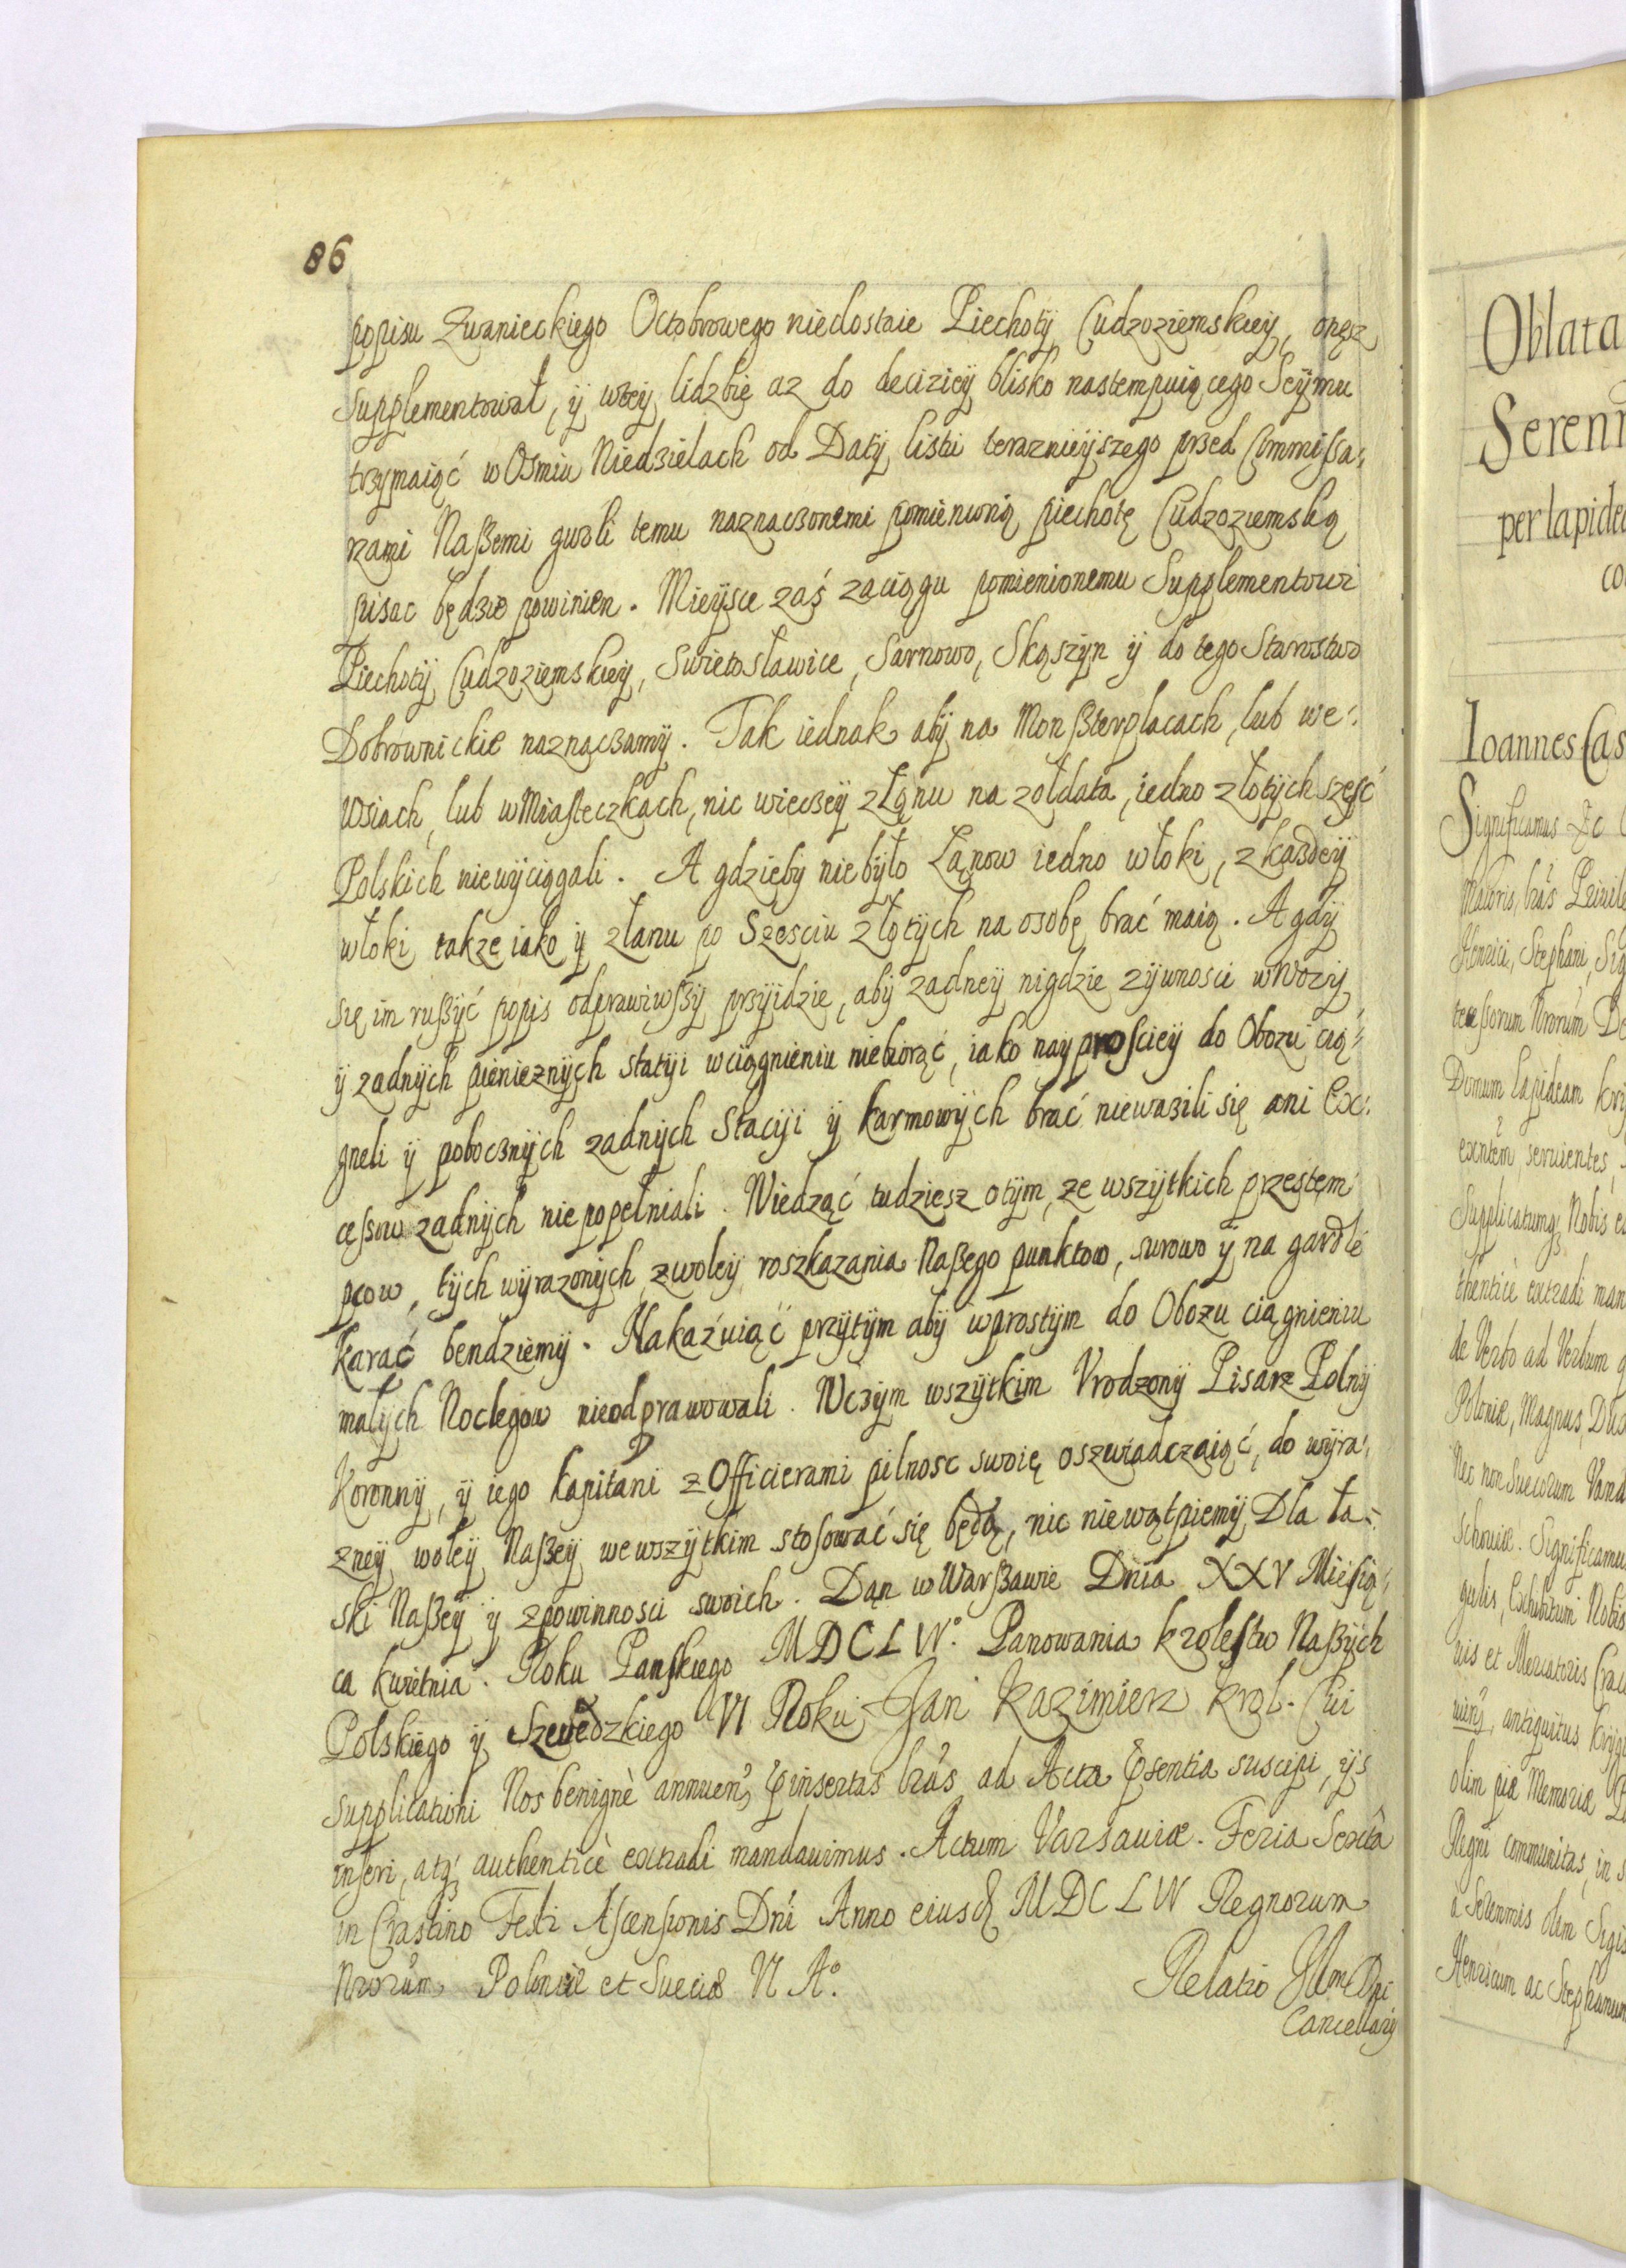 86
popisu Zwanieckiego Octobrowego niedostaie Piechoty Cudzoziemskiey, oręsz
supplementował, y wtey lidzbie az do deciziey blisko nastempuiącego Seymu
trzymaiąć w Osmiu Niedzielach od Daty listu teraznieyszego przed Commissa-
rzami Naßemi gwoli temu naznaczonemi pomienioną piechotę Cudzoziemską
pisac będzie powinien. Mieysce zaś zaciągu pomienionemu Supplementowi
Piechoty Cudzoziemskiey, Swietosławice, Sarnowo, Skąszyn y do tego Starostwo
Dobrownickie naznaczamy. Tak iednak aby na Monßterplacach, lub we-
wsiach, lub w Miasteczkach, nic wieczey z Łąnu na zołdata, iedno złotych szesć
Polskich niewyciągali. A gdzieby niebyło Łąnow iedno włoki, z kazdey
włoki takze iako y z łanu po Szesciu złotych na osobę brać maią. A gdy
się im rußyć popis odprawiwßy przyidzie, aby zadney nigdzie zywnosci wwozy
y zadnych pienieznych statyi wciągnieniu niebiorąć, iako nayprosciey do Obozu cią-
gneli y pobocznych zadnych Staciyi y karmowych brać niewazili się ani Ex-
cessow zadnych niepopełniali. Wiedząć tudziesz otym, ze wszytkich przestem-
pcow, tych wyrazonych z woley roszkazania Naßego punktow, surowo y na gardle
karać bendziemy. Nakaźuiąć przytym aby wprostym do Obozu ciągnieniu
małych Noclegow nieodprawowali. Wczym wszytkim Vrodzony Pisarz Polny
Koronny, y iego kapitani z Officierami pilnosc swoię oszwiadczaiąć, do wyra-
zney woley Naßey wewszytkim stosować się będą, nic niewątpiemy Dla ła-
ski Naßey y zpowinnosci swoich. Dąn w Warßawie Dnia XXV Miesią-
ca kwietnia. Roku Panskiego MDCLIV°. Panowania krolestw Naßych
Polskiego y Szwedzkiego VI Roku Jan Kazimierz Krol. Cui
supplicationi Nos benignè annuen̄, p̱insertas l̄ras ad Acta p̄sentia suscipi, ijs
inseri, atq̨ authenticè extradi mandauimus. Actum Varsauiæ. Feria Sexta
in Crastino Festi Ascensionis Dn̄i Anno eiusd̄ MDCLIV Regnorum
Nr̄orum Poloniæ et Sueciæ VI A°.
Relatio Illm̄i Dn̄i
Cancellarij
Oblata
Sereni
per lapide
co
Ioannes Cas
Significamus
Henrici, Stephani, Sig
Domum lapideam
Supplicatumq̨ Nobis
thenticè extradi man
de Verbo ad Verbum
Poloniæ, Magnus, Dux
Nec non Suecorum Vand
Significamus
nis et Mercatoris Crac
antiquitus
olim piæ Memoriæ
Regni communitas, in
olim Sigis
Henricum ac Stephanum